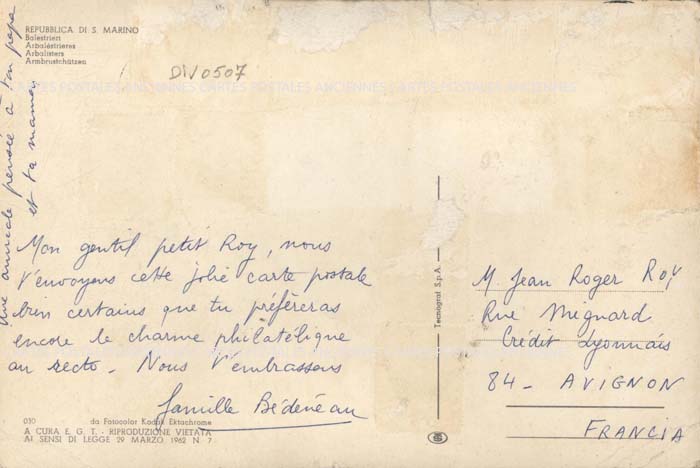 REPUBBLICA DI S. MARINO
Balestrieri
Arbaléstrieres
Arbalisters
Armbrustchützen
DIV0507
CARTES POSTALES ANCIENNES CARTES POSTALES ANCIENNES CARTES POSTALES ANCIENNES
Une amicale pensée à ton papa
et ta maman
Mon gentil petit Roy, nous
t'envoyons cette jolie carte postale
bien certains que tu préfèreras
encore le charme philatélique
au recto - Nous t'embrassons
famille Bédéneau
030 da Fotocolor Kodak Ektachrome
A CURA E. G. T. - RIPRODUZIONE VIETATA
AI SENSI DI LEGGE 29 MARZO 1962 N. 7
Tecnograf S.p.A.
M Jean Roger ROY
Rue Mignard
Crédit Lyonnais
84 - AVIGNON
FRANCIA